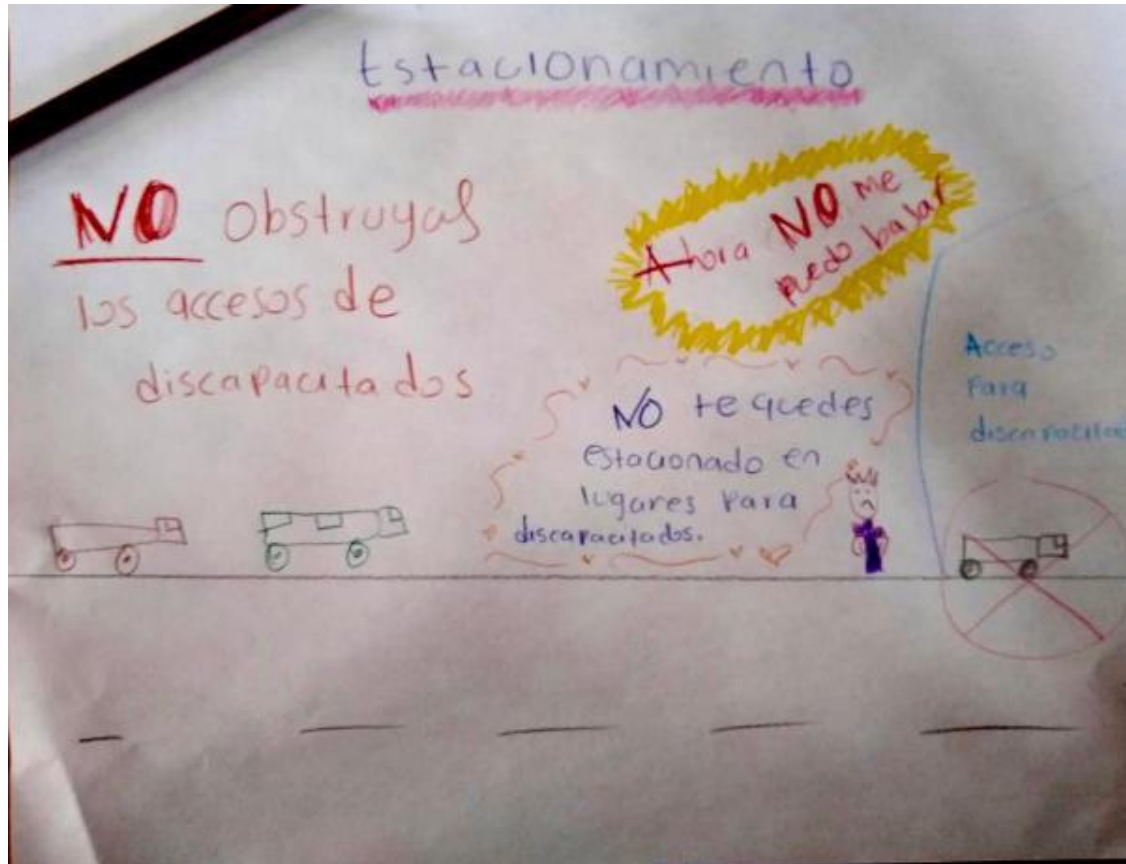 Estacionamiento
NO obstruyas
los accesos de
discapacitados
Ahora NO me
puedo bajar
NO te quedes
estacionado en
lugares para
discapacitados.
Acceso
Para
discapacitad